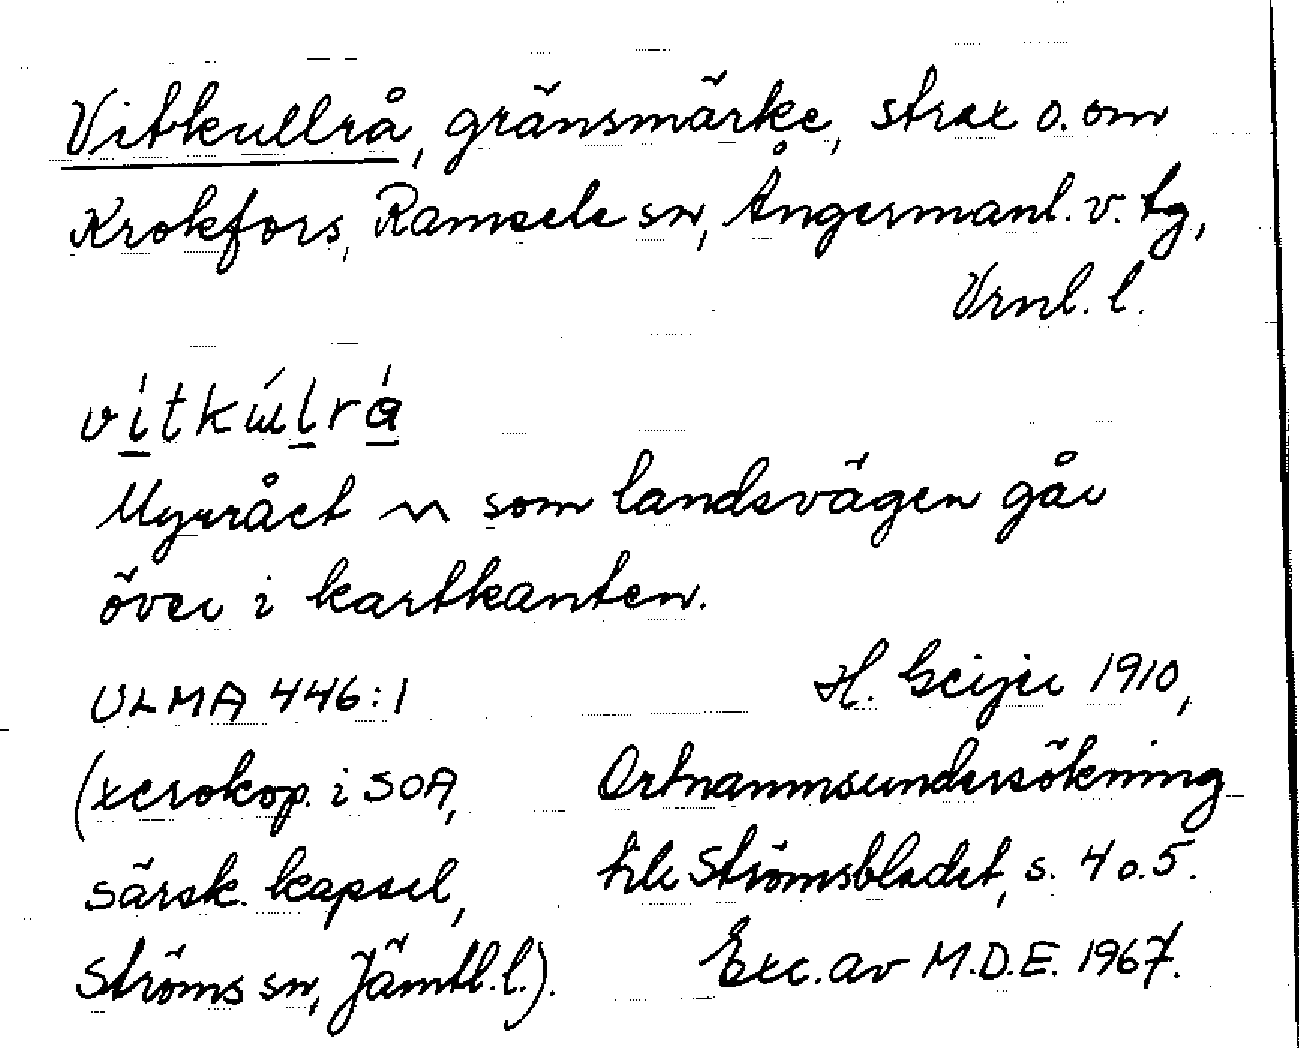 Vitkullrå, gränsmärke, strax o. om
Krokfors, Ramsele sn, Ångermanl. v. tg,
Vrnl. l.
vítkúlrá
Myrrået ~ som landsvägen går
över i kartkanten.
ULMA 446:1
H. Geijer 1910,
(xerokop. i SOA,
Ortnamnsundersökning
särsk. kapsel,
till Strömsbladet, s. 4 o. 5.
Ströms sn, Jämtl. l.).
Exc. av M.D.E. 1967.